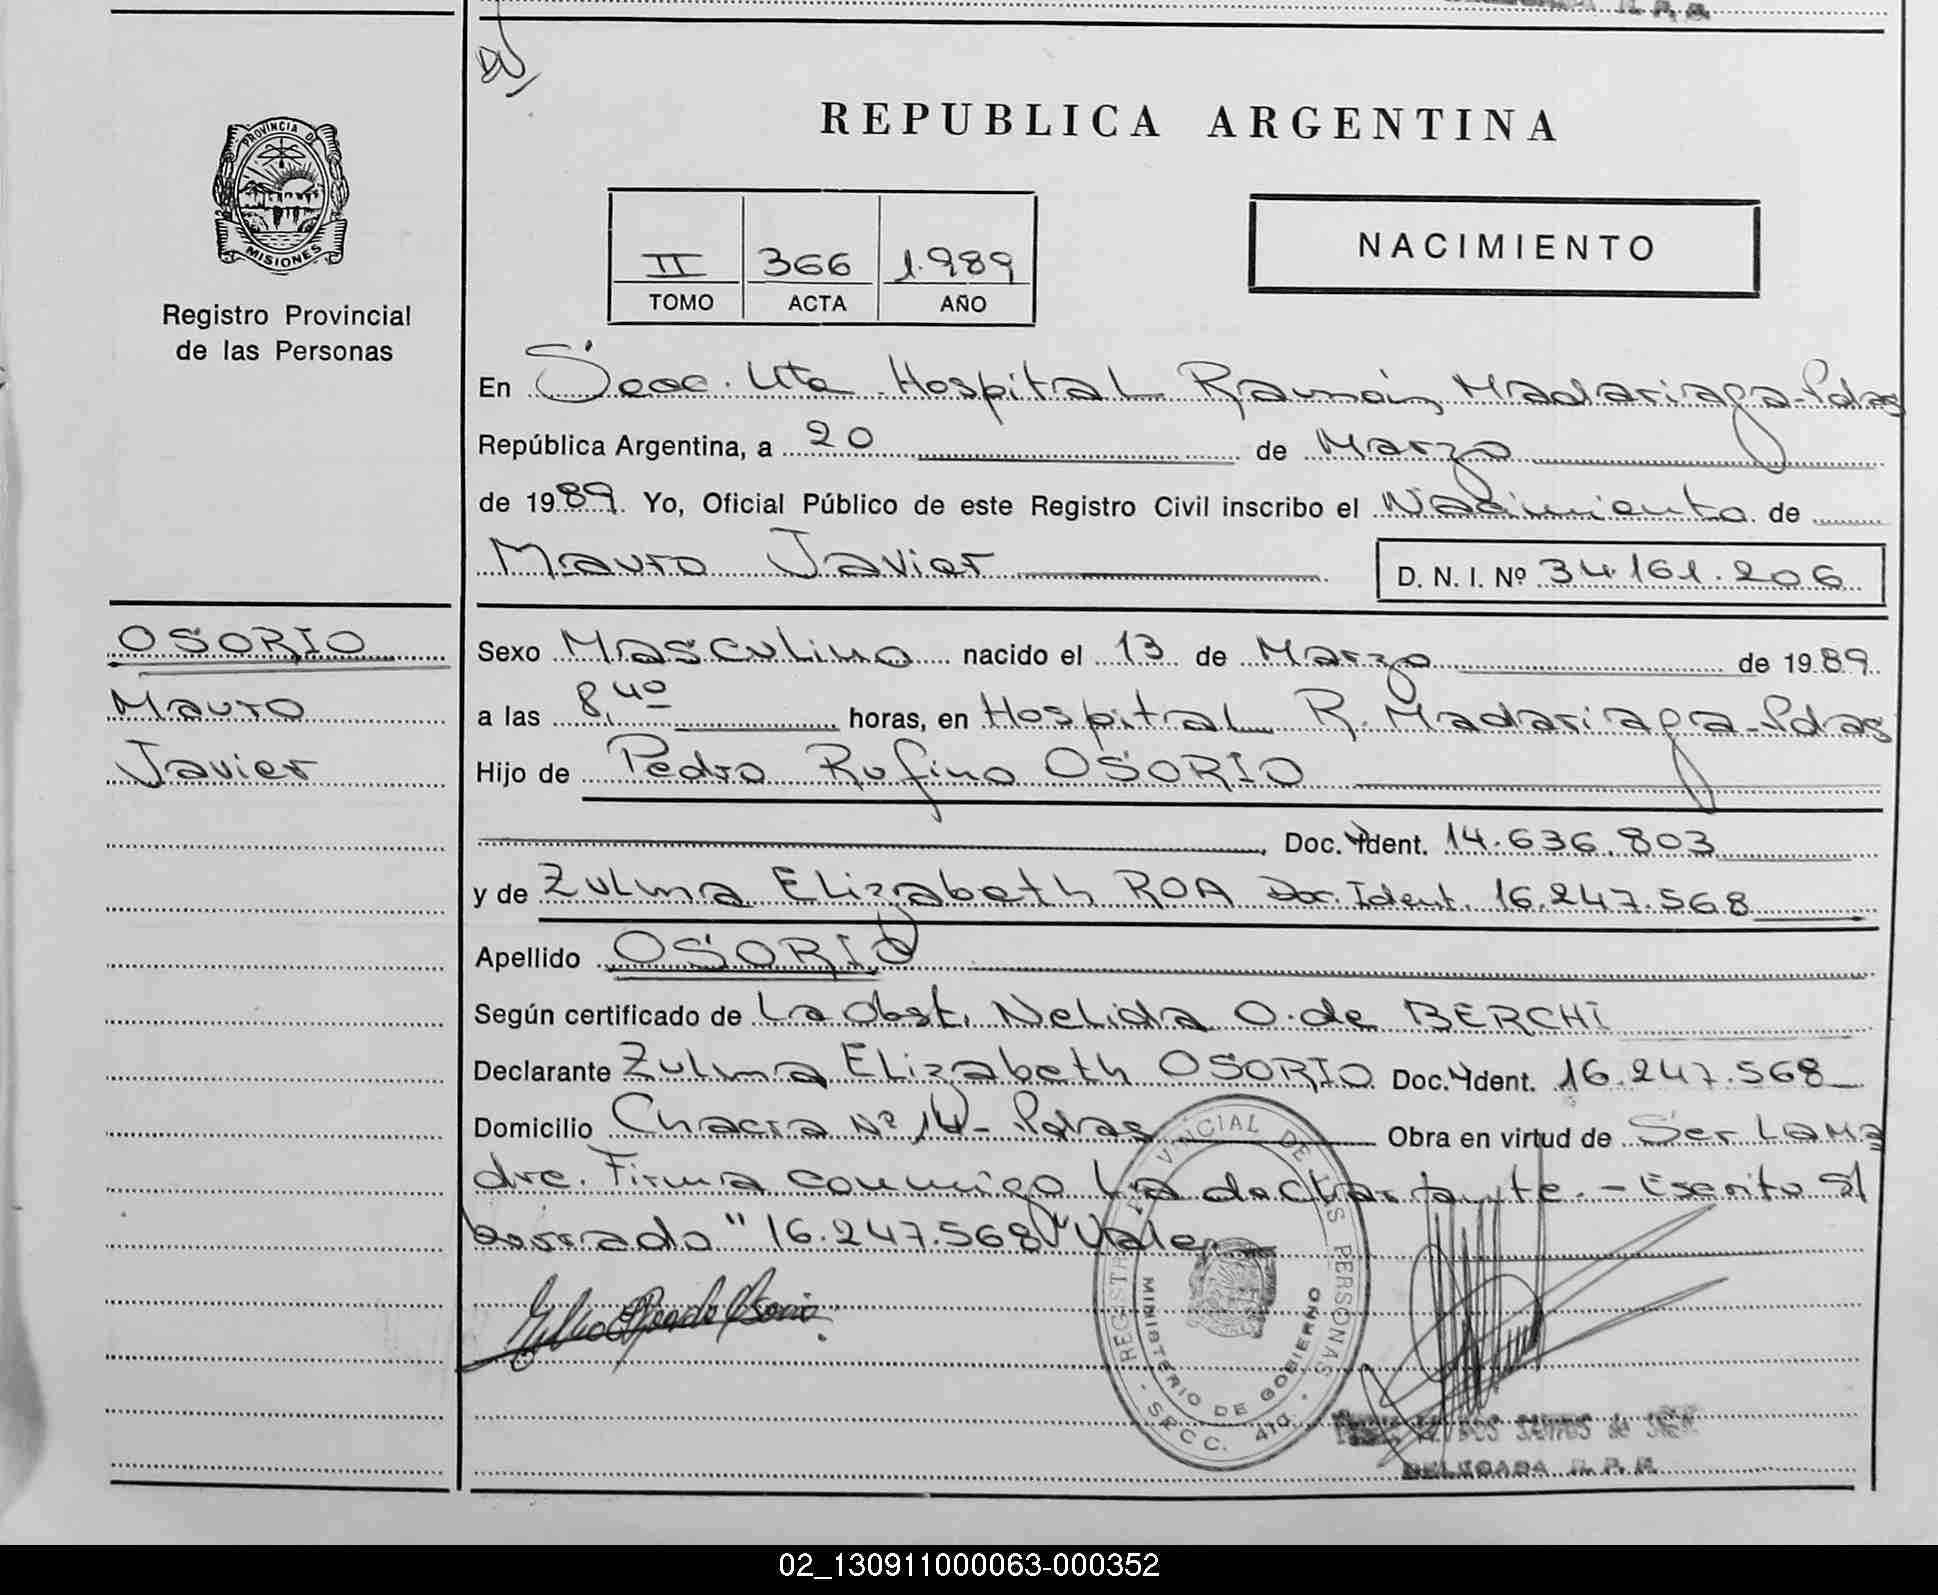 REPUBLICA ARGENTINA
PROVINCIA DE
MISIONES
Registro Provincial
de las Personas
II 366 1.989
TOMO ACTA AÑO
NACIMIENTO
En Secc. 4ta. Hospital Ramón Madariaga-Pdas
República Argentina, a 20 de Marzo
de 1989. Yo, Oficial Público de este Registro Civil inscribo el Nacimiento de
Mauro Javier D. N. I. Nº 34.161.206
OSORIO
Mauro
Javier
Sexo Masculino nacido el 13 de Marzo de 1989
a las 8,40 horas, en Hospital R. Madariaga-Pdas
Hijo de Pedro Rufino OSORIO
Doc. Ident. 14.636.803
y de Zulma Elizabeth ROA Doc. Ident. 16.247.568
Apellido OSORIO
Según certificado de La Obst. Nelida O. de BERCHI
Declarante Zulma Elizabeth OSORIO Doc. Ident. 16.247.568
Domicilio Chacra Nº 14- Pdas Obra en virtud de Ser La Ma
dre. Firma conmigo La declarante.- Escrito s/
borrado "16.247.568" Vale.
REGISTRO PROVINCIAL DE LAS PERSONAS
MINISTERIO DE GOBIERNO
SECC. 4TA.
DOS SANTOS de
DELEGADA R. P. P.
02_130911000063-000352